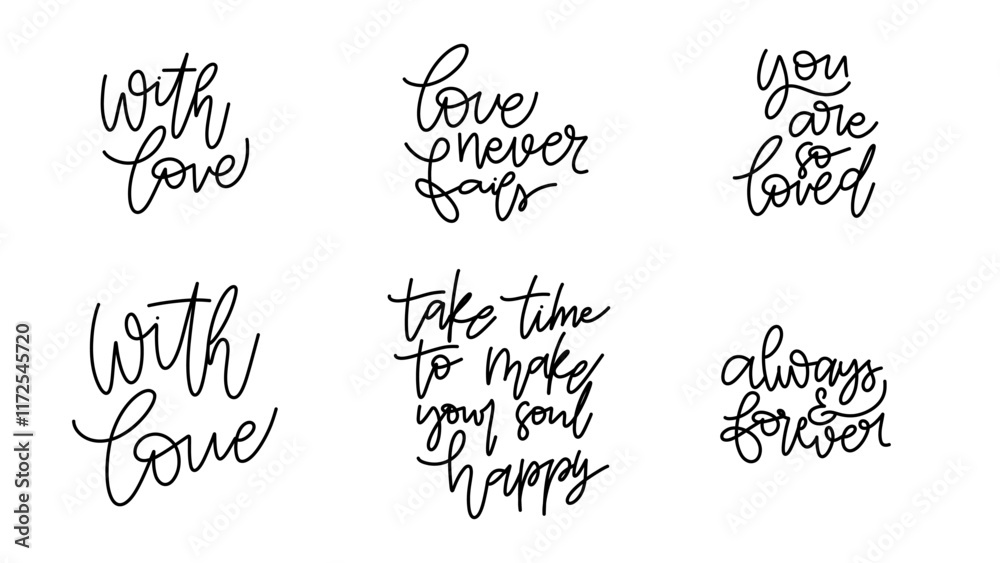 with
love
love
never
fails
you
are
so
loved
with
love
take time
to make
your soul
happy
always
&
forever
Adobe Stock | #1172545720